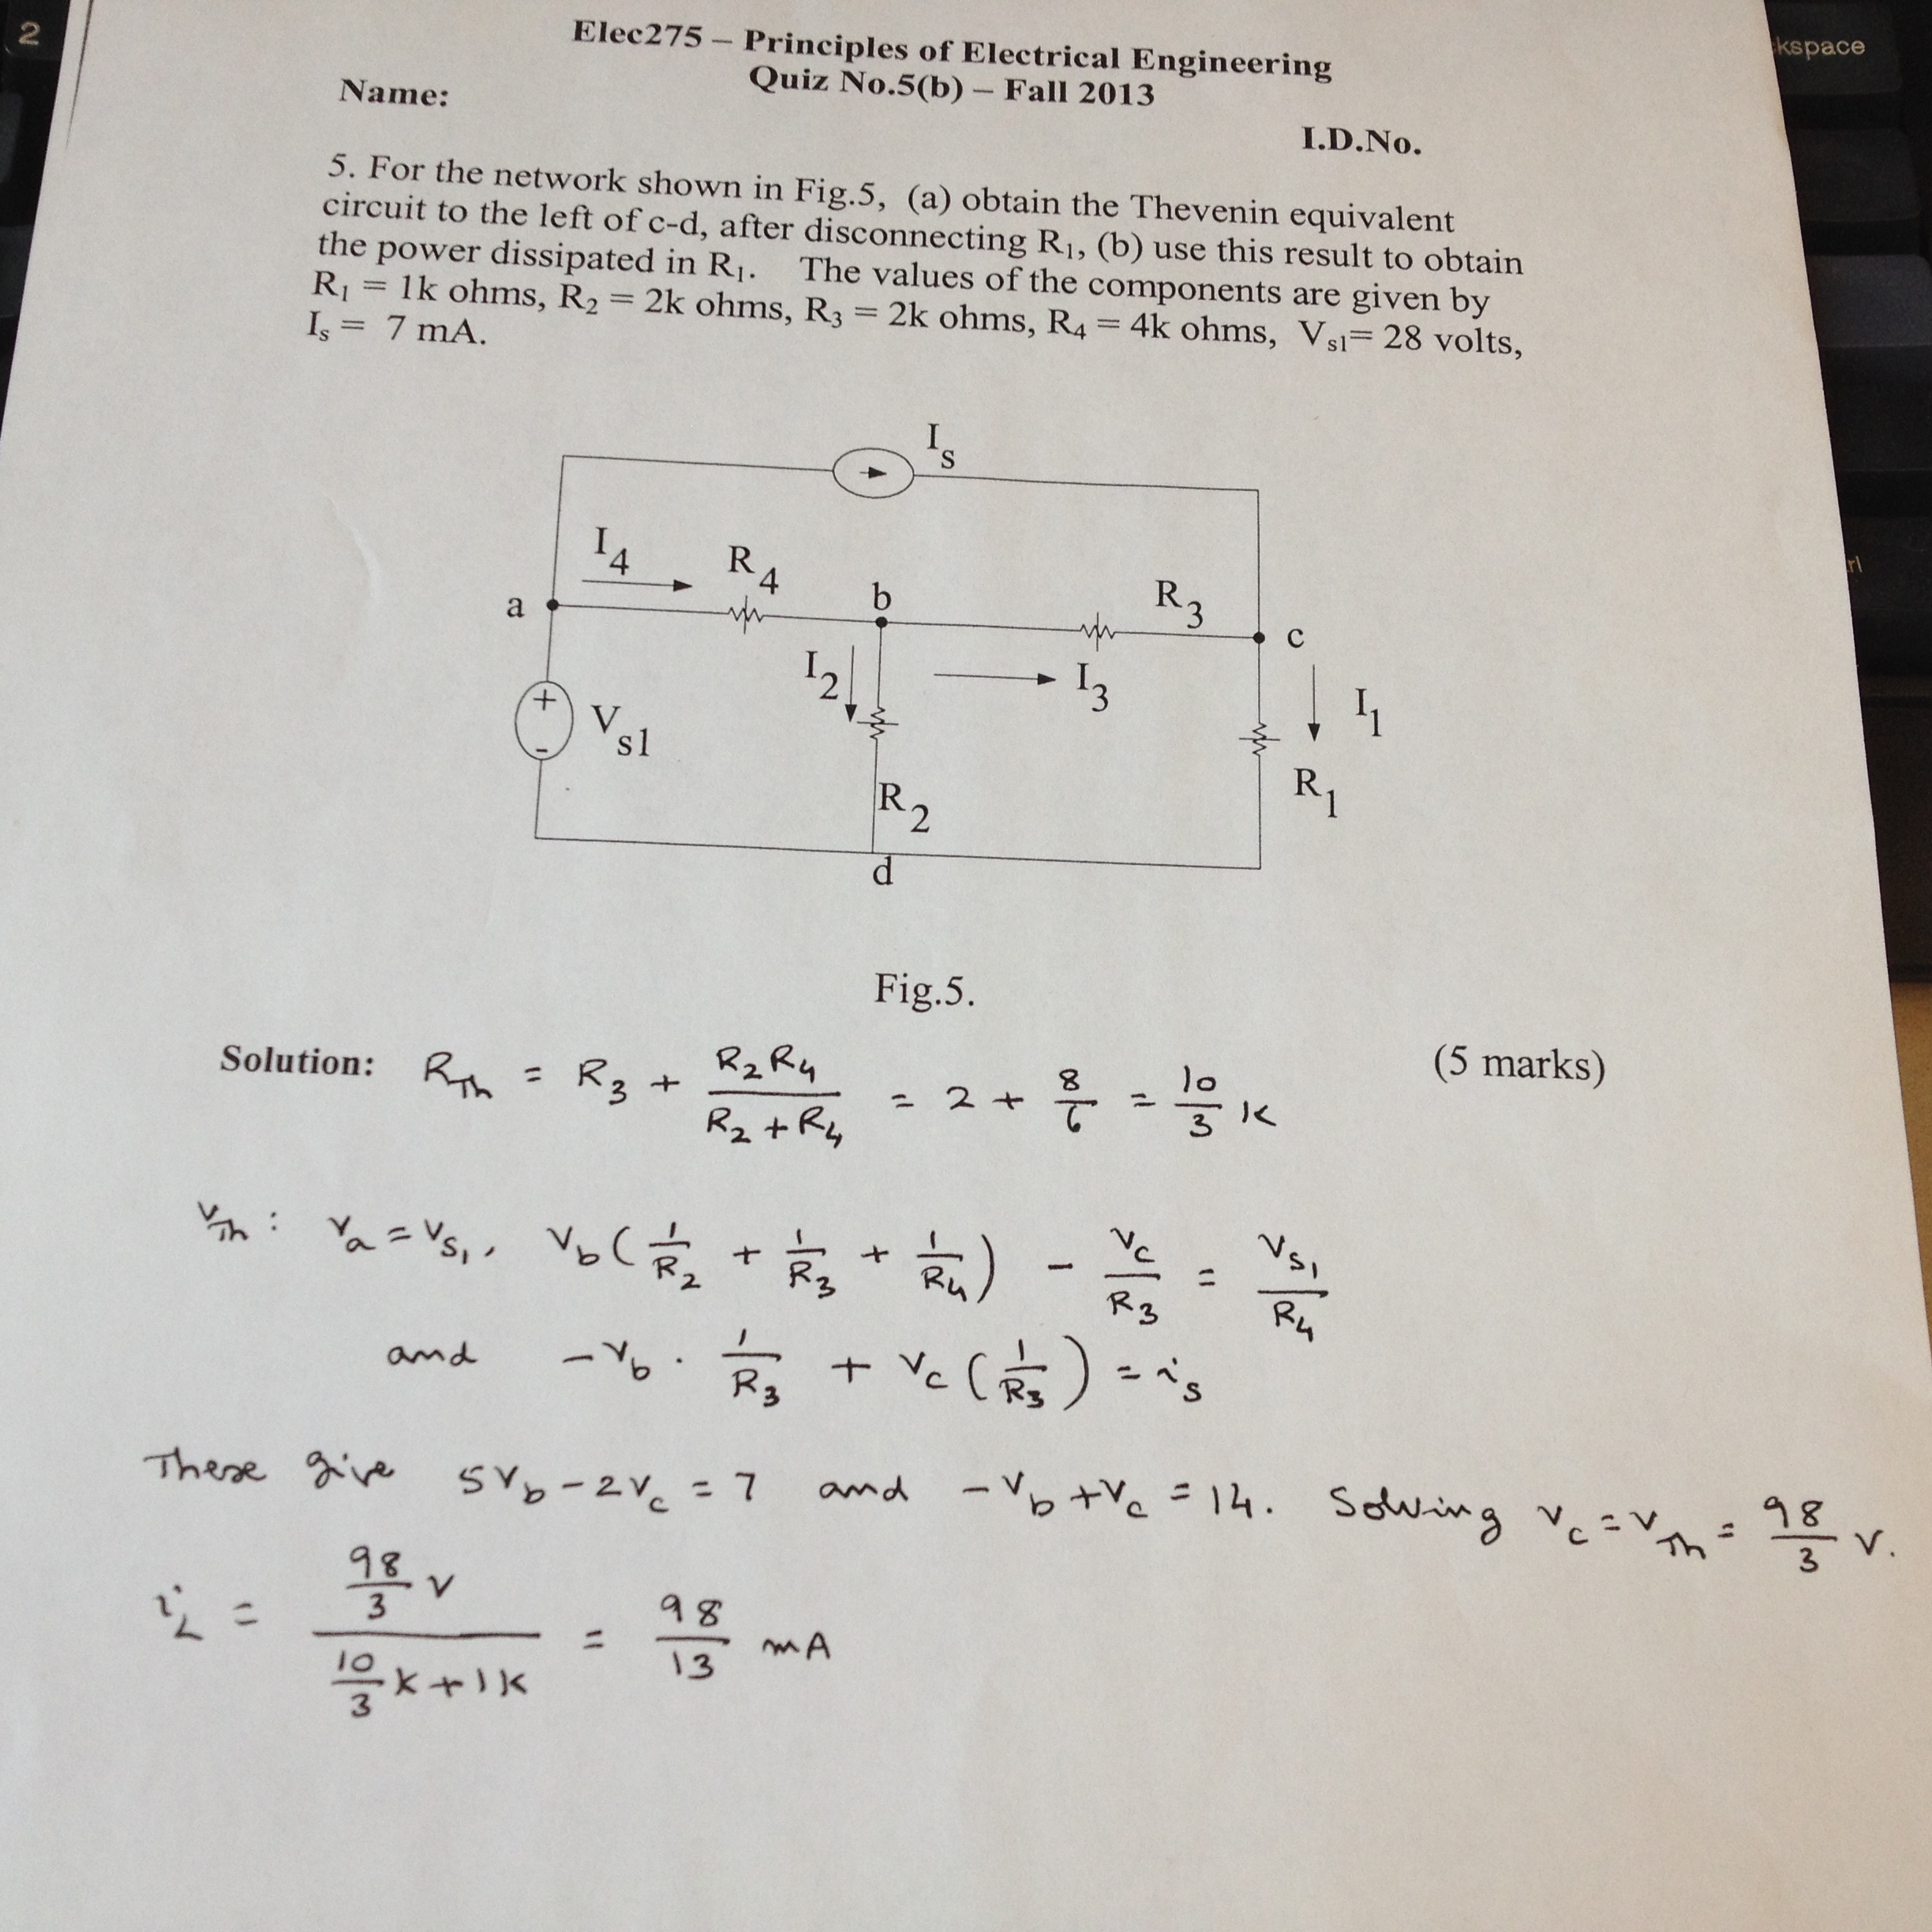 2
kspace
rl
Elec275 – Principles of Electrical Engineering
Quiz No.5(b) – Fall 2013
Name:
I.D.No.
5. For the network shown in Fig.5, (a) obtain the Thevenin equivalent
circuit to the left of c-d, after disconnecting R₁, (b) use this result to obtain
the power dissipated in R₁. The values of the components are given by
R₁ = 1k ohms, R₂ = 2k ohms, R₃ = 2k ohms, R₄ = 4k ohms, Vs1= 28 volts,
Is = 7 mA.
Is
I4
R4
a
b
R3
c
I2
I3
I1
+
-
Vs1
R2
R1
d
Fig.5.
Solution: RTh = R3 + R2R4/(R2+R4) = 2 + 8/6 = 10/3 K
(5 marks)
vTh : va = vs1, vb(1/R2 + 1/R3 + 1/R4) - vc/R3 = vs1/R4
and -vb · 1/R3 + vc(1/R3) = is
These give 5vb - 2vc = 7 and -vb + vc = 14. Solving vc = vTh = 98/3 v.
iL = (98/3 v)/(10/3 K + 1K) = 98/13 mA